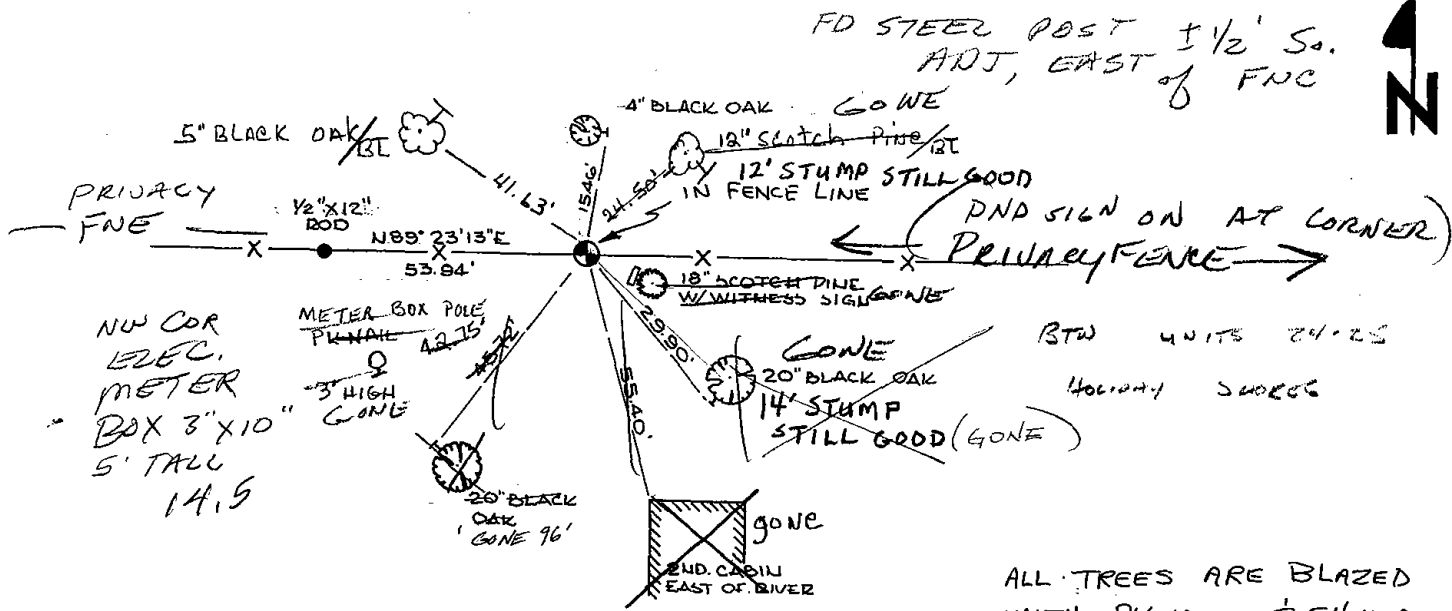 FD STEEL POST ± 1/2' So.
ADJ, EAST of FNC
N
4" BLACK OAK GONE
5" BLACK OAK/BT
12" Scotch Pine/BT
12' STUMP STILL GOOD
IN FENCE LINE
41.63'
15.46'
24.50'
PRIVACY
FNE
1/2" X 12"
ROD
N.89° 23' 13" E
53.94'
X X X X
PND SIGN ON AT CORNER)
PRIVACY FENCE
18" SCOTCH PINE
W/ WITNESS SIGN GONE
NW COR
ELEC.
METER
BOX 3" X 10"
5' TALL
14.5
METER BOX POLE
PK NAIL 42.75'
3' HIGH
GONE
29.90'
55.40'
GONE
20" BLACK OAK
14' STUMP
STILL GOOD (GONE)
BTW UNITS 24-25
HOLIDAY SHORES
20" BLACK
OAK
'GONE 96'
gone
2ND. CABIN
EAST OF RIVER
ALL TREES ARE BLAZED